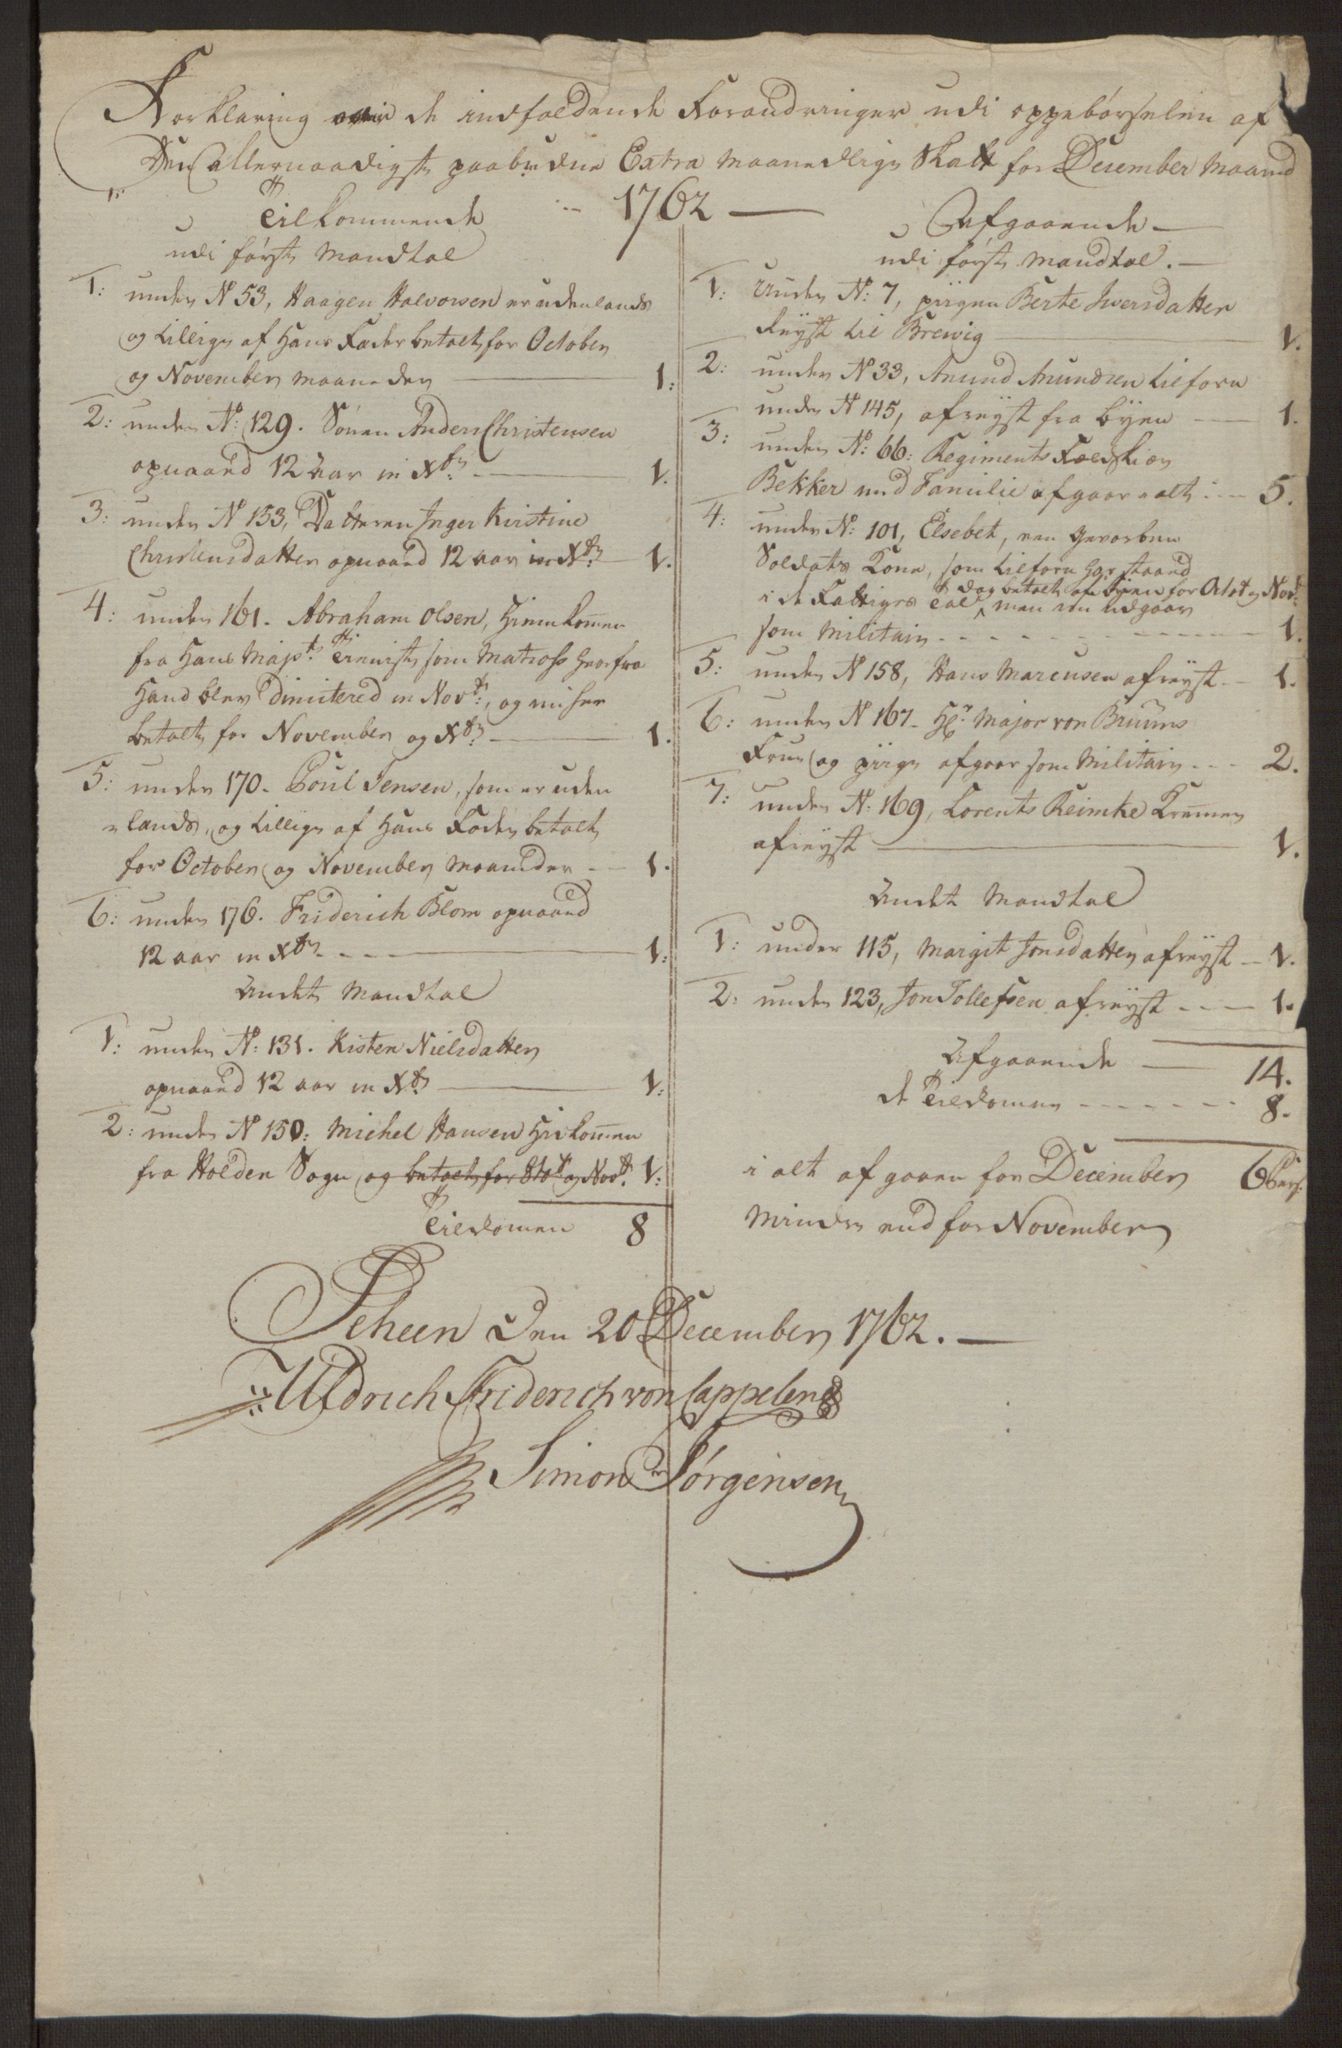 Forklaring over de indfaldende Forandringer udi oppebørselen af
Den allernaadigst paabudne Extra Maanedlige Skatt for December Maaned
1762
Tilkommende
udi første Mandtal
1: under N 53, Haagen Halvorsen er udenlands
og tillige af Hans Fader betalt for October
og November maaneder 1:
2: under N: 129. Sønen Anders Christensen
opnaaed 12 Aar in Xbr 1.
3: under N 153, Datteren Inger Kirstine
Christensdatter opnaaed 12 aar in Xbr 1.
4: under 161. Abraham Olsen, Hiemkomen
fra Hans Majst. Tieniste som Matross hvorfra
Hand blev Dimitered in Novbr, og nu her
betalt for November og Xbr 1.
5: under 170. Poul Jensen, som er uden
lands, og tillige af Hans Fader betalt
for October og November Maaneder 1.
6: under 176. Friderich Blom opnaaed
12 aar in Xbr 1.
Andet Mandtal
1: under N: 131. Kisten Nielsdatter
opnaaed 12 aar in Xbr 1:
2: under N 150: Michel Hansen Hidkomen
fra Holden Sogn og betalt for 8tobr og Novbr. 1:
Tilkomen 8
Afgaaende
udi første Mandtal.
1: Under N: 7, piigen Berte Iversdatter
reyst til Brevig 1.
2: under N 33, Anund Anundsen tilforn
under N 145, afreyst fra byen 1.
3: under N: 66: Regiments Feldskier
Bekker med Familie afgaar alt 5.
4: under N: 101, Elsebet, en hvorben
Soldats Kone, som tilforn har staaed
i de Fattiges Tal dog betalt af Byen for Octob og Novbr
men nu udgaar
som Militair 1.
5: under N 158, Hans Marcusen afreyst 1.
6: under N 167. Hr Major von Bruuns
Frue og piige afgaar som Militair 2.
7: under N: 169, Lorents Reimke Kremer
afreyst 1.
Andet Mandtal
1: under 115, Margit Jonsdatter afreyst 1.
2: under 123, Jon Tollefsen afreyst 1.
Afgaaende 14.
de Tilkomen 8.
i alt afgaaen for December 6 Pers.
Mindre end for November
Scheen Den 20 December 1762.
Uldrich Friderich von Cappelen
Simon Jørgensen